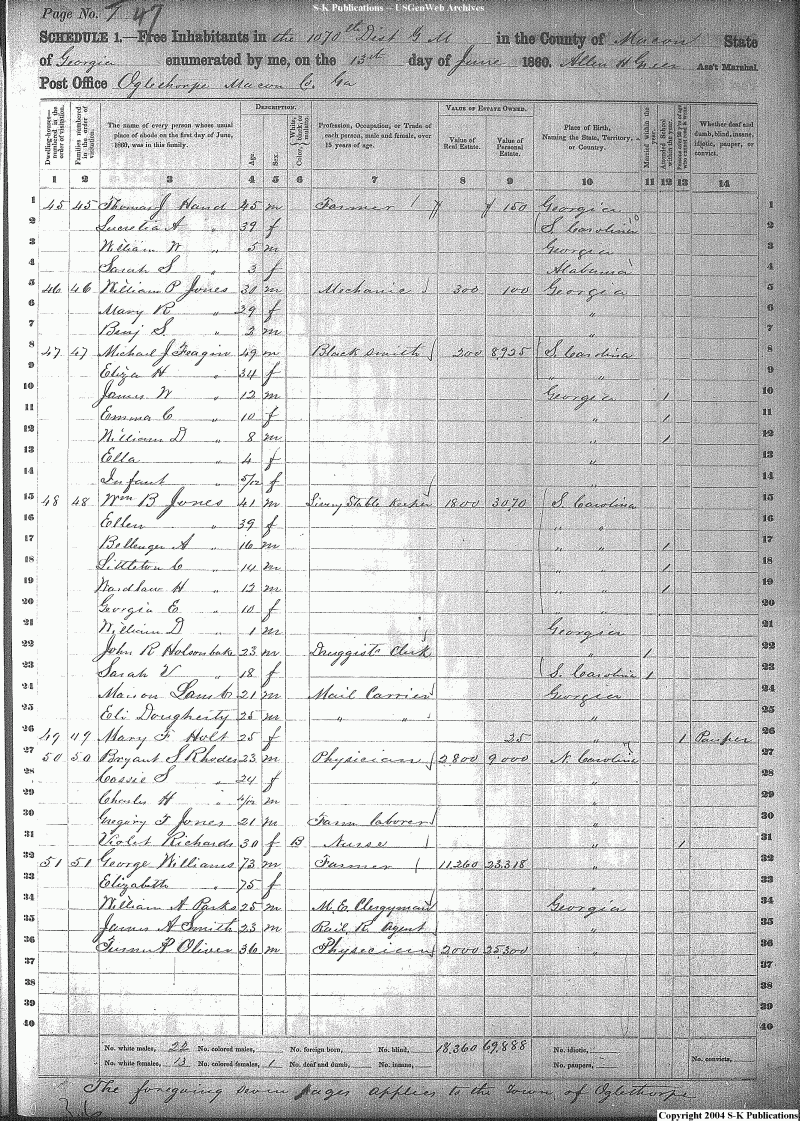 S-K Publications -- USGenWeb Archives
Page No. 7 47
SCHEDULE 1.—Free Inhabitants in the 1070th Dist G M in the County of Macon State
of Georgia enumerated by me, on the 13th day of June 1860. Allen H Green Ass't Marshal
Post Office Oglethorpe Macon C. Ga
Dwelling-houses—numbered in the order of visitation.
Families numbered in the order of visitation.
The name of every person whose usual place of abode on the first day of June, 1860, was in this family.
DESCRIPTION.
Age.
Sex.
Color, White, black, or mulatto.
Profession, Occupation, or Trade of each person, male and female, over 15 years of age.
VALUE OF ESTATE OWNED.
Value of Real Estate.
Value of Personal Estate.
Place of Birth, Naming the State, Territory, or Country.
Married within the year.
Attended School within the year.
Whether deaf and dumb, blind, insane, idiotic, pauper, or convict.
1 2 3 4 5 6 7 8 9 10 11 12 13 14
1 45 45 Thomas J Hand 45 m Farmer 150 Georgia 1
2 Lucretia A " 39 f S. Carolina 2
3 William W " 5 m Georgia 3
4 Sarah S " 3 f Alabama 4
5 46 46 William P Jones 30 m Mechanic 300 100 Georgia 5
6 Mary R " 29 f " 6
7 Benj S " 2 m " 7
8 47 47 Michael J Feagin 49 m Black smith 200 8,925 S. Carolina 8
9 Eliza H " 34 f " " 9
10 James W " 12 m Georgia 1 10
11 Emma C " 10 f " 1 11
12 William D " 8 m " 1 12
13 Ella " 4 f " 13
14 Infant " 5/12 f " 14
15 48 48 Wm B Jones 41 m Livery Stable Keeper 1800 3070 S. Carolina 15
16 Ellen " 39 f " " 16
17 Bellenger A " 16 m " " 1 17
18 Littleton C " 14 m " " 1 18
19 Wardlaw H " 12 m " " 1 19
20 Georgia E " 10 f " " 20
21 William D " 1 m Georgia 21
22 John R Holsonbake 23 m Druggist Clerk " 1 22
23 Sarah V " 18 f S. Carolina 1 23
24 Macon Lamb 21 m Mail Carrier Georgia 24
25 Eli Dougherity 25 m " " " 25
26 49 49 Mary F Holt 25 f 25 " 1 Pauper 26
27 50 50 Bryant S Rhodes 23 m Physician 2800 9000 N. Carolina 27
28 Cassie S " 24 f " 28
29 Charles H " 4/12 m " 29
30 Gregory F Jones 21 m Farm laborer " 30
31 Violet Richards 30 f B Nurse " 1 31
32 51 51 George Williams 73 m Farmer 11,260 23,318 " 32
33 Elizabeth " 75 f " 33
34 William A Parks 25 m M. E. Clergyman Georgia 34
35 James A Smith 23 m Rail R. Agent " 35
36 Turner P Oliver 36 m Physician 2000 25300 " 36
37 37
38 38
39 39
40 40
No. white males, 22 No. colored males, No. foreign born, No. blind, 18,360 69,888 No. idiotic,
No. white females, 13 No. colored females, 1 No. deaf and dumb, No. insane, No. paupers, No. convicts,
The foregoing seven pages applies to the Town of Oglethorpe
36
Copyright 2004 S-K Publications